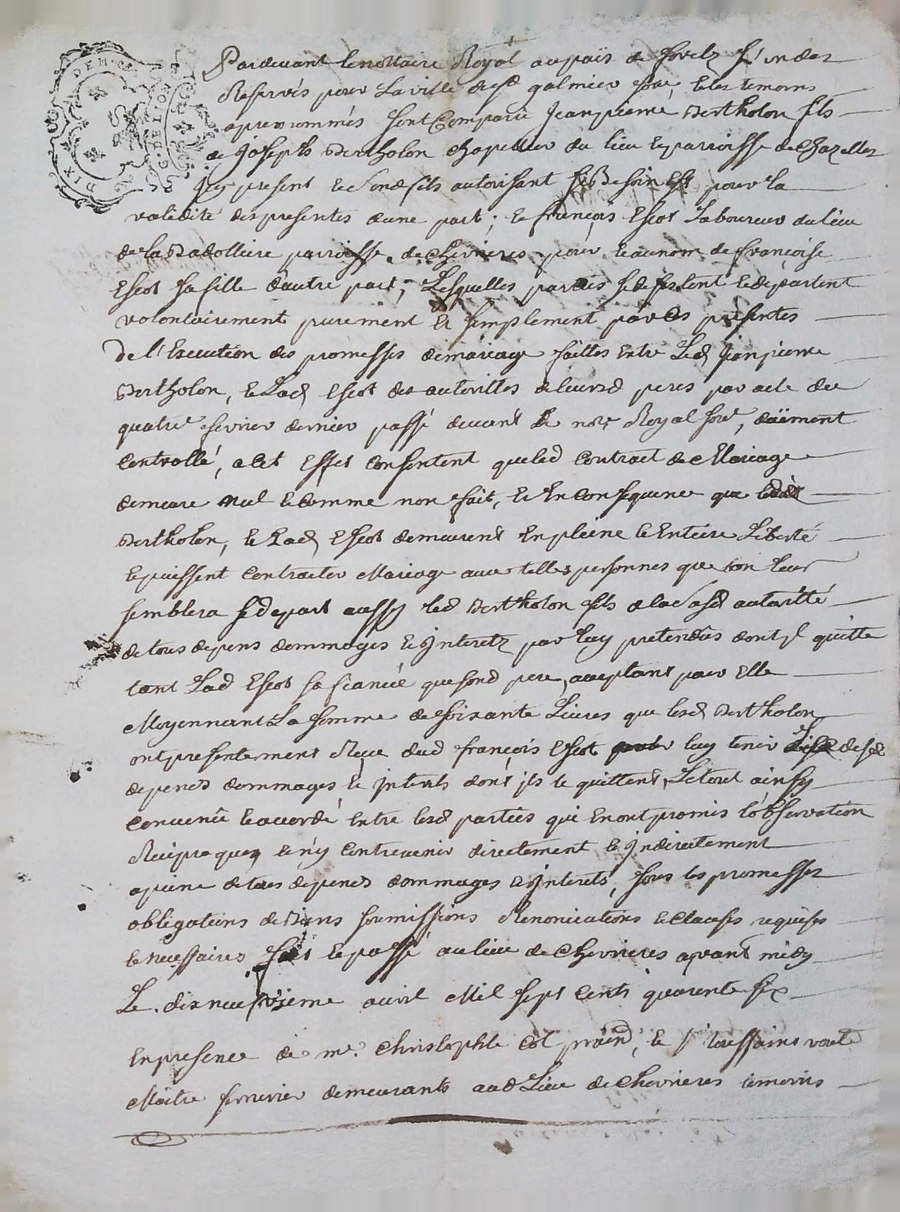 DIX DEN.
G. DE LYON
Pardevant le nottaire Royal au païs de forelz l'un des
Reservés pour la ville de st galmier sousé, & les temoins
apres nommés sont Comparu Jeanpierre Bertholon fils
de Joseph Bertholon chapellier du lieu & parroisse de Chazelles
Icy present & sond fils autorisant sy Besoin Est pour la
validité des presentes d'une part; & françois Escot Laboureur du lieu
de la Badolliere parroisse de Chevrieres pour & au nom de françoise
Escot sa fille d'autre part, Lesquelles parties se desistent & departent
volontairement purement Et simplement par Ces presentes
De l'Execution des promesses de mariage faittes Entre Led Jeanpierre
Bertholon, & Lad Escot des autorittés de leursd peres par acte du
quatre fevrier dernier passé devant le notre Royal sousé, düement
Controllé, a Cet Effet Consentent que led Contract de Mariage
demeure Nul & comme non fait, & En Consequence que led
Bertholon, & Lad Escot demeurent En pleine & Entiere Liberté
& puissent Contracter Mariage avec telles personnes que bon leur
semblera se depart aussy led Bertholon fils de la susd autoritté
de tous depens dommages & interetz par luy pretendus dont il quitte
tant Lad Escot sa fiancée que sond pere acceptant pour Elle
Moyennant La somme de soixante Livres que lesd Bertholon
ont presentement Reçue dud françois Escot pour luy tenir Lieu desd
depends dommages & interets dont ils le quittent, Le tout ainsy
Convenû & accordé Entre lesd parties qui En ont promis l'observation
Reciproque, & n'y Contrevenir directement & Indirectement
a peine de tous depends dommages & interets, sous les promesses
obligations de Biens soumissions Renonciations & Clauses requises
& necessaires fait & passé au lieu de Chevrieres avant midy
Le dix neufvieme avril Mil sept Cents quarente six
En presence de mr. Christophle Cot & sr toussaint
Maître serrurier demeurants aud Lieu de Chevrieres temoins